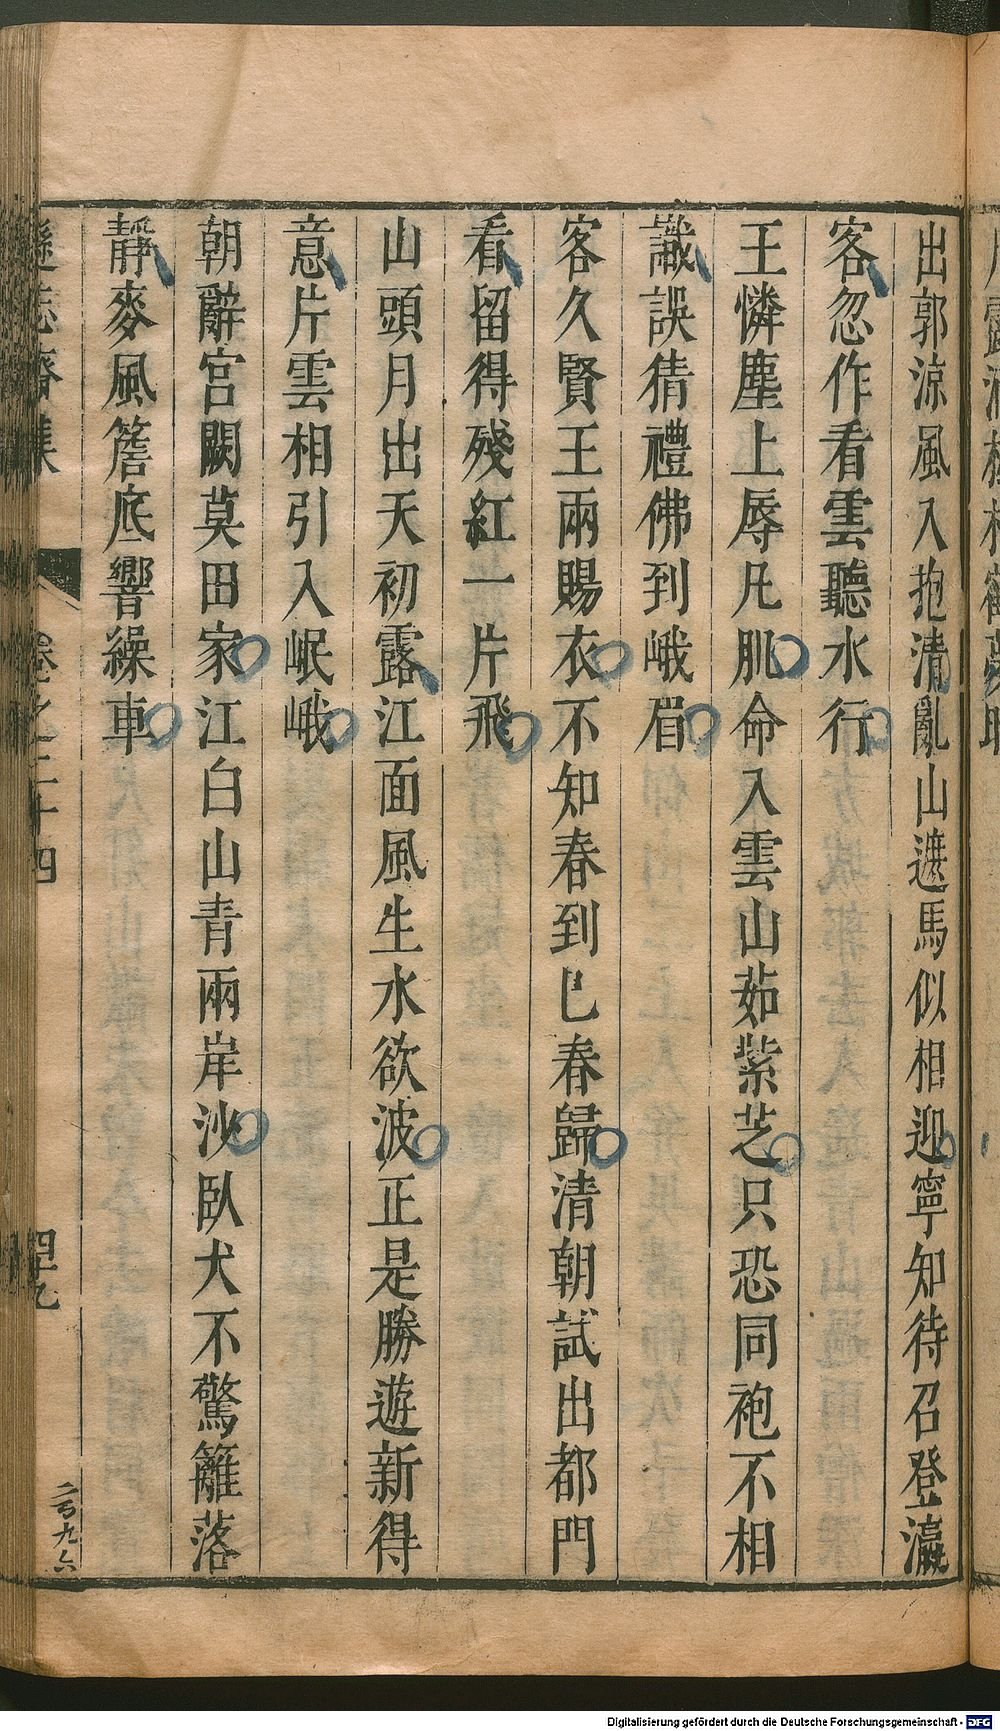 出郭涼風入抱清亂山遮馬似相迎寧知待召登瀛
客忽作看雲聽水行
王憐塵上辱凡肌命入雲山茹紫芝只恐同袍不相
識誤猜禮佛到峨眉
客久賢王兩賜衣不知春到已春歸清朝試出都門
看留得殘紅一片飛
山頭月出天初露江面風生水欲波正是勝遊新得
意片雲相引入岷峨
朝辭宮闕莫田家江白山青兩岸沙臥犬不驚籬落
靜麥風簷底響繰車
遜志齋集
卷之二十四
四十九
Digitalisierung gefördert durch die Deutsche Forschungsgemeinschaft - DFG